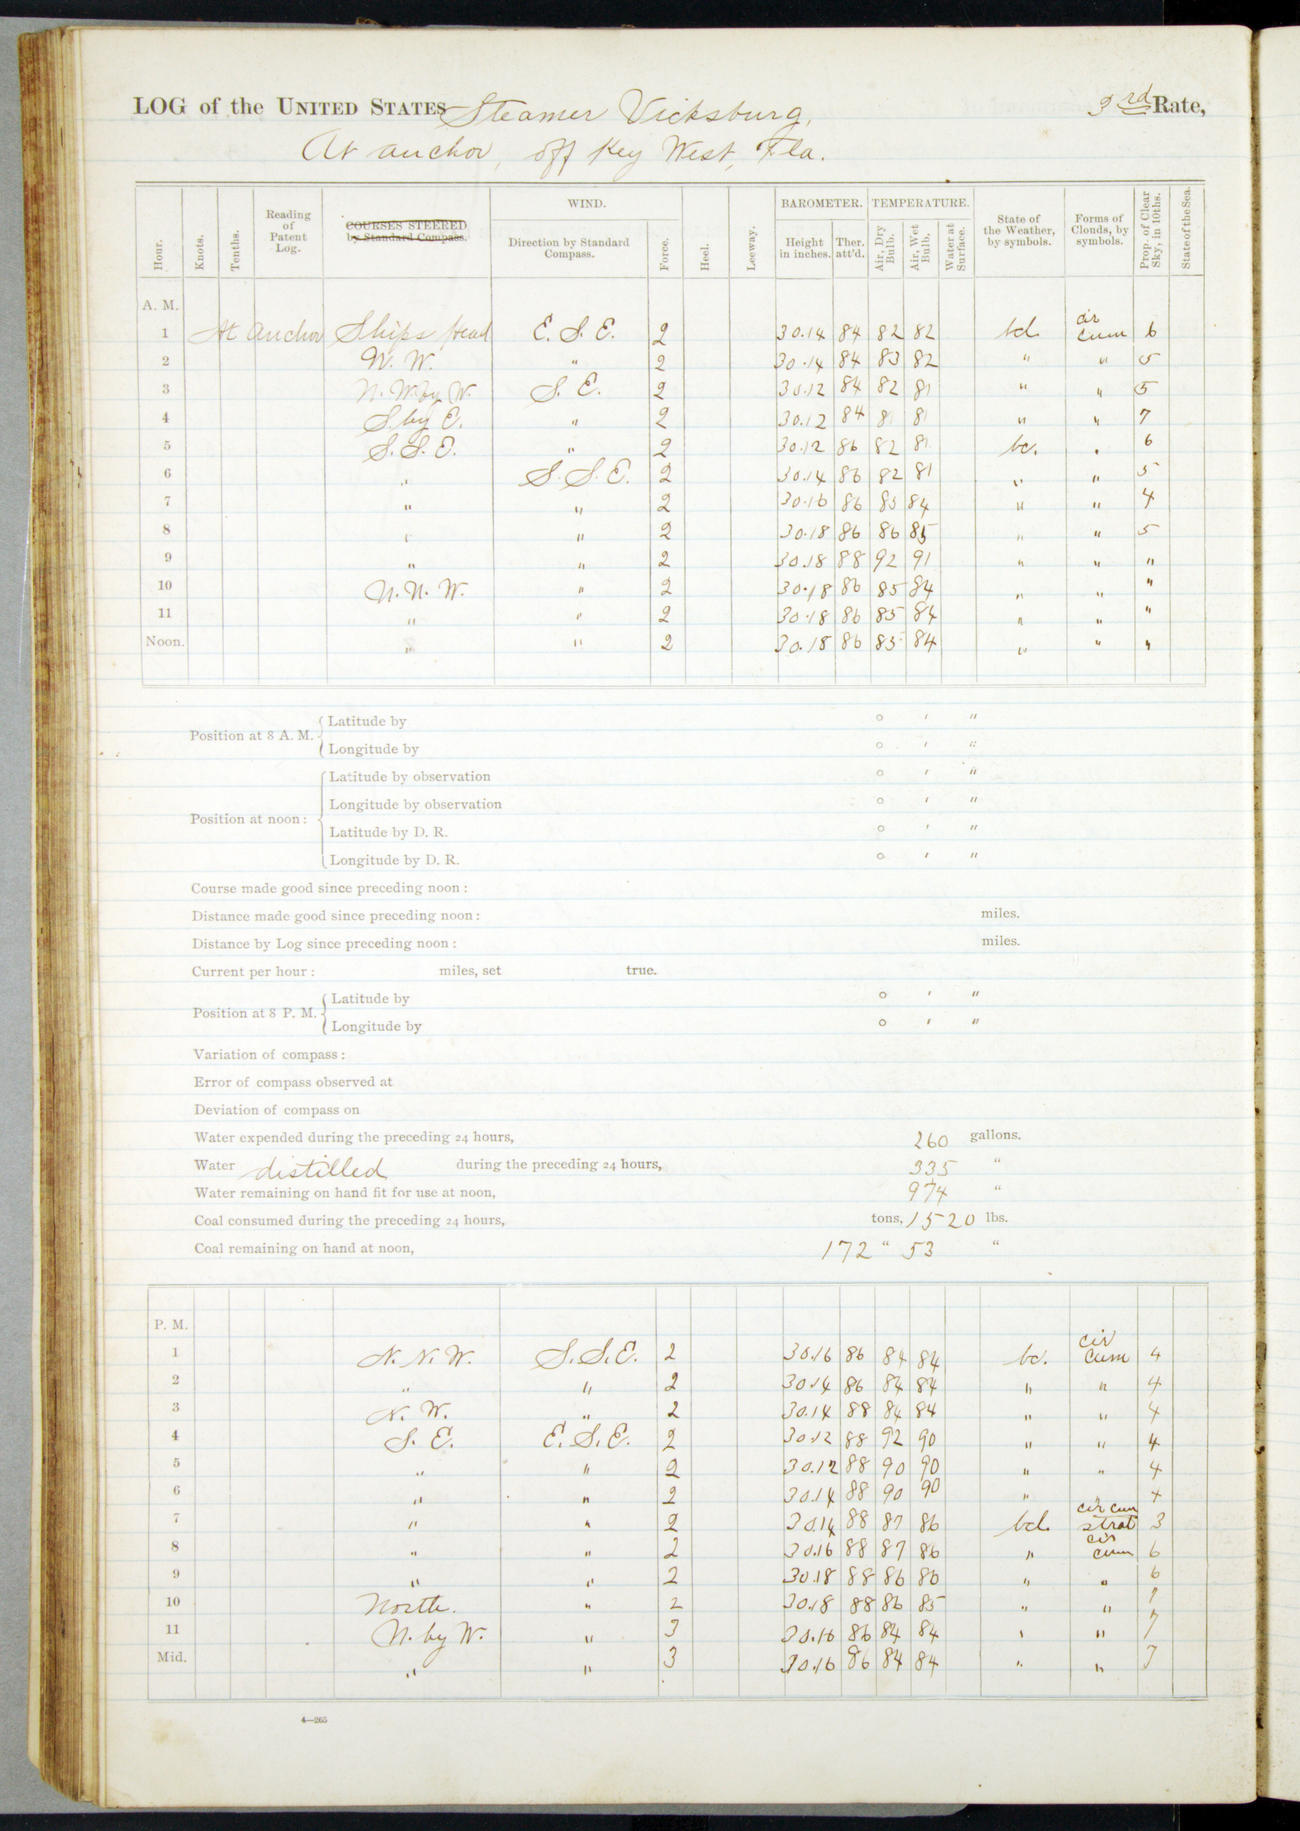 LOG of the UNITED STATES Steamer Vicksburg, 3rd Rate,
At anchor, off Key West, Fla.
Hour. Knots. Tenths. Reading of Patent Log. COURSES STEERED by Standard Compass. WIND. Direction by Standard Compass. Force. Heel. Leeway. BAROMETER. Height in inches. Ther. att'd. TEMPERATURE. Air, Dry Bulb. Air, Wet Bulb. Water at Surface. State of the Weather, by symbols. Forms of Clouds, by symbols. Prop. of Clear Sky, in 10ths. State of the Sea.
A. M.
1 At Anchor Ships Head E. S. E. 2 30.14 84 82 82 bd. cir cum 6
2 W. " 2 30.14 84 83 82 " " 5
3 N. W. by W. S. E. 2 30.12 84 82 81 " " 5
4 S. by E. " 2 30.12 84 81 81 " " 7
5 S. S. E. " 2 30.12 86 82 81 bc. " 6
6 " S. S. E. 2 30.14 86 82 81 " " 5
7 " " 2 30.16 86 85 84 " " 4
8 " " 2 30.18 86 86 85 " " 5
9 " " 2 30.18 88 92 91 " " "
10 N. N. W. " 2 30.18 86 85 84 " " "
11 " " 2 30.18 86 85 84 " " "
Noon. " " 2 30.18 86 85 84 " " "
Position at 8 A. M. Latitude by ° ′ ″
Longitude by ° ′ ″
Position at noon: Latitude by observation ° ′ ″
Longitude by observation ° ′ ″
Latitude by D. R. ° ′ ″
Longitude by D. R. ° ′ ″
Course made good since preceding noon:
Distance made good since preceding noon: miles.
Distance by Log since preceding noon: miles.
Current per hour: miles, set true.
Position at 8 P. M. Latitude by ° ′ ″
Longitude by ° ′ ″
Variation of compass:
Error of compass observed at
Deviation of compass on
Water expended during the preceding 24 hours, 260 gallons.
Water distilled during the preceding 24 hours, 335 "
Water remaining on hand fit for use at noon, 974 "
Coal consumed during the preceding 24 hours, tons, 1520 lbs.
Coal remaining on hand at noon, 172 " 53 "
P. M.
1 N. N. W. S. S. E. 2 30.16 86 84 84 bc. cir cum 4
2 " " 2 30.14 86 84 84 " " 4
3 N. W. " 2 30.14 88 84 84 " " 4
4 S. E. E. S. E. 2 30.12 88 92 90 " " 4
5 " " 2 30.12 88 90 90 " " 4
6 " " 2 30.14 88 90 90 " " 4
7 " " 2 30.14 88 87 86 bd. cir cum strat 3
8 " " 2 30.16 88 87 86 " cir cum 6
9 " " 2 30.18 88 86 86 " " 6
10 North. " 2 30.18 88 86 85 " "
11 N. by W. " 3 30.16 86 84 84 " " 7
Mid. " " 3 30.16 86 84 84 " " 7
4—265